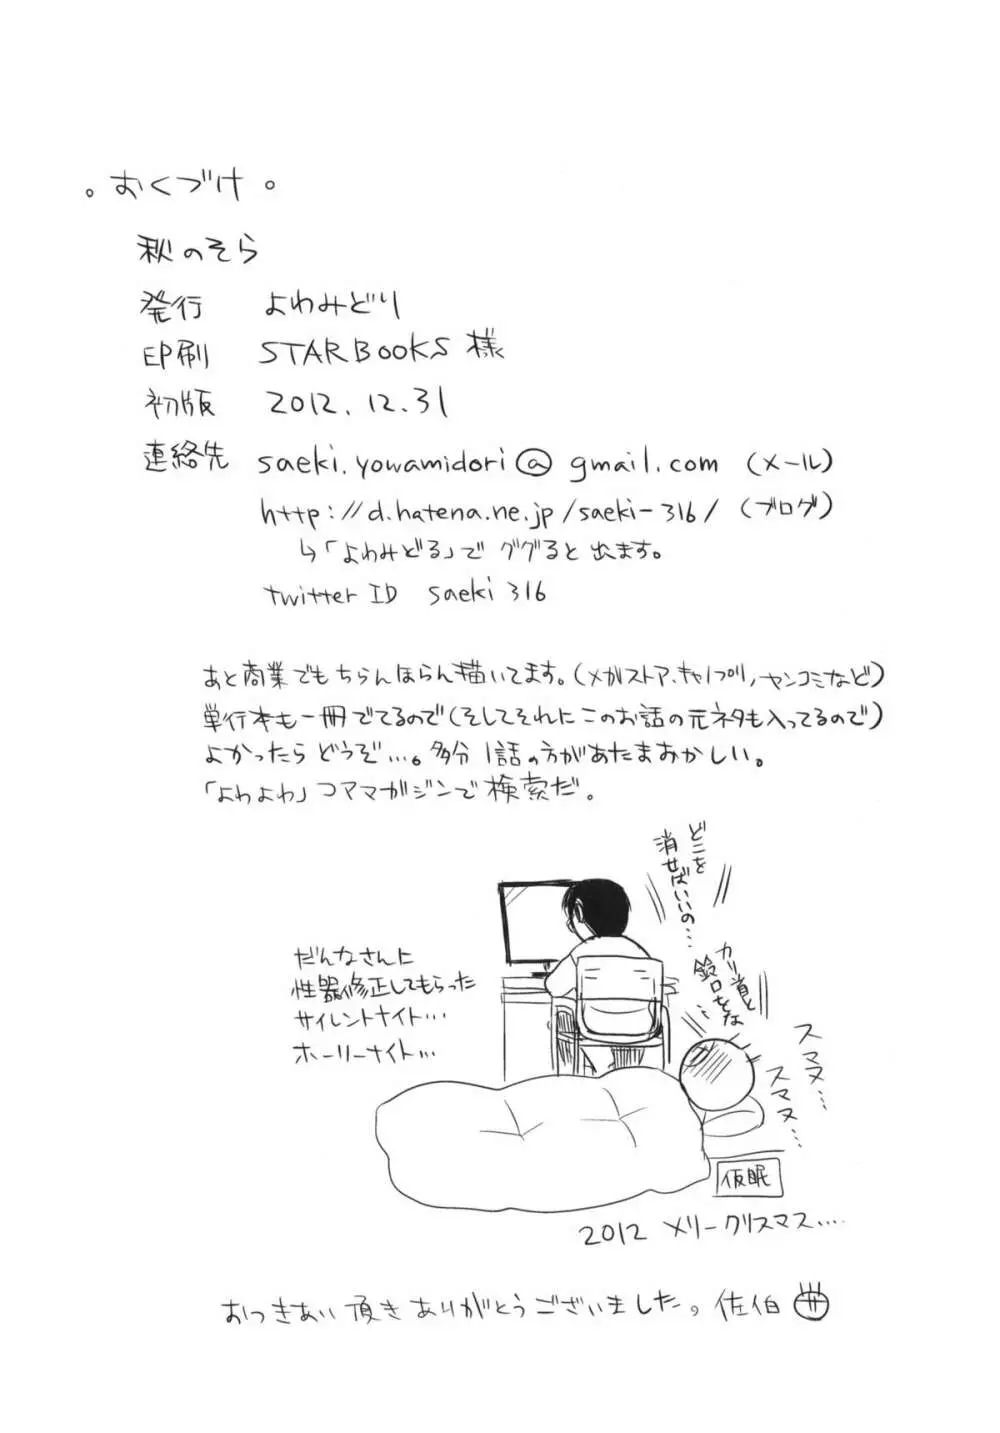 。おくづけ。
秋のそら
発行 よわみどり
印刷 STARBOOKS 様
初版 2012.12.31
連絡先 saeki.yowamidori@gmail.com (メール)
http://d.hatena.ne.jp/saeki-316/ (ブログ)
↳「よわみどる」で ググると 出ます。
twitter ID saeki316
あと商業でもちらんほらん描いてます。(メガストア、キャノプリ、ヤンコミなど)
単行本も一冊でてるので(そしてそれにこのお話の元ネタも入ってるので)
よかったら どうぞ…。多分 1話の方があたまおかしい。
「よわよわ」コアマガジンで検索だ。
どこを
消せばいいの…
カリ首と
鈴口をな…
だんなさんに
性器修正してもらった
サイレントナイト…
ホーリーナイト…
スマヌ…
スマヌ…
仮眠
2012 メリークリスマス….
おつきあい頂きありがとうございました。佐伯 サ